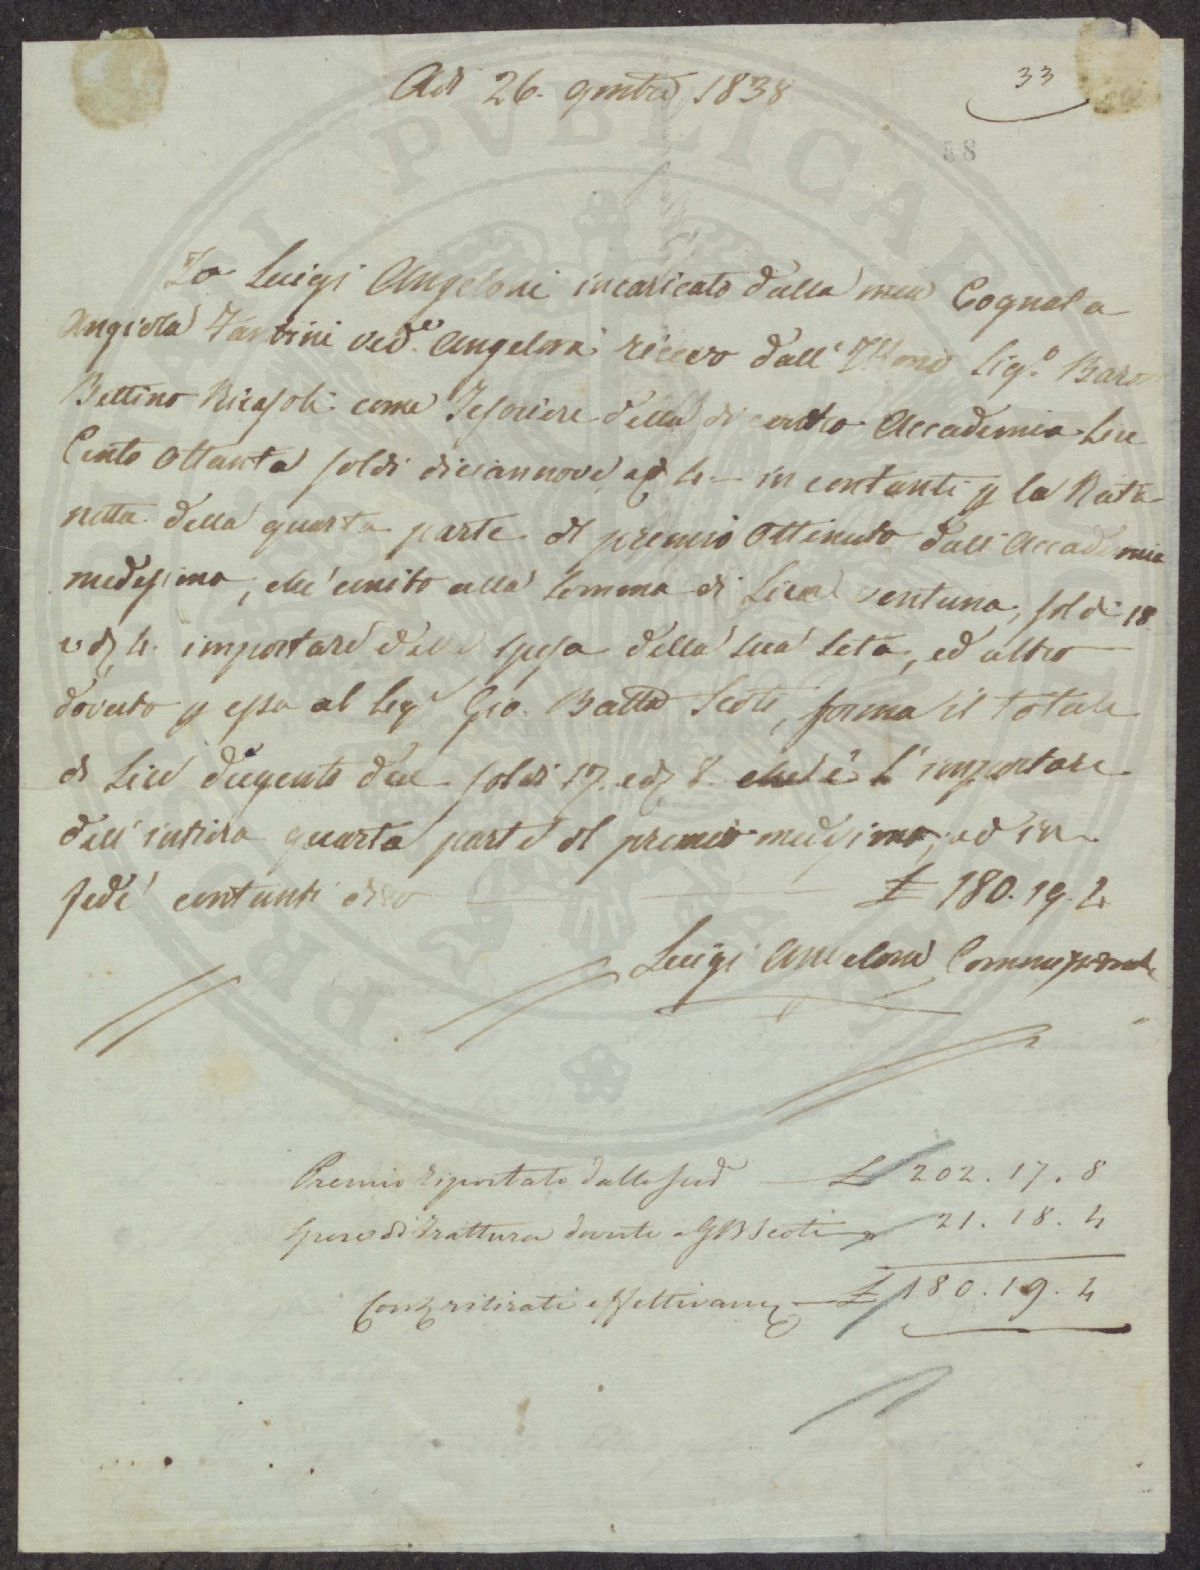 Adi 26. 9mbre 1838
33
68
Io Luigi Angeloni incaricato dalla mia Cognata
Angiola Fantini ved.e Angeloni ricevo dall' Illmo Sig.e Baron
Bettino Ricasoli come Tesoriere della di contro Accademia Lire
Cento Ottanta soldi diciannove, e d 4 – in contanti p la Rata
netta della quarta parte del premio Ottenuto dall' Accademia
medesima, che unito alla somma di Lire ventuna, soldi 18
e d 4. importare delle spesa della sua seta, ed altro
dovuto p essa al Sigr Gio. Batta Scoti, forma il totale
di Lire dugento due soldi 17. e d 8. che è L' importare
dell' intiera quarta parte del premio medesimo, ed in
fede contanti dico £ 180. 19. 4
Luigi Angeloni Commissionato
Premio riportato dalle sud £ 202. 17. 8
Spese di trattura dovute a GB Scoti " 21. 18. 4
ritirati effettivam £ 180. 19. 4